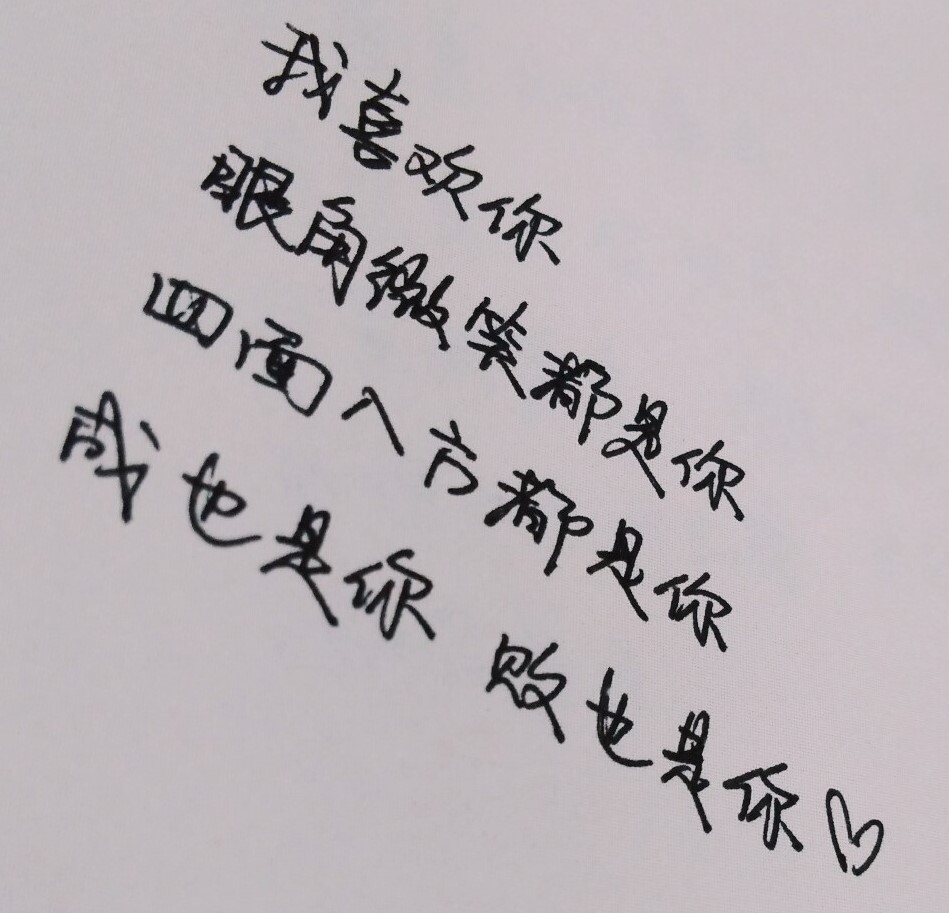 我喜欢你
眼角微笑都是你
四面八方都是你
成也是你 败也是你♡